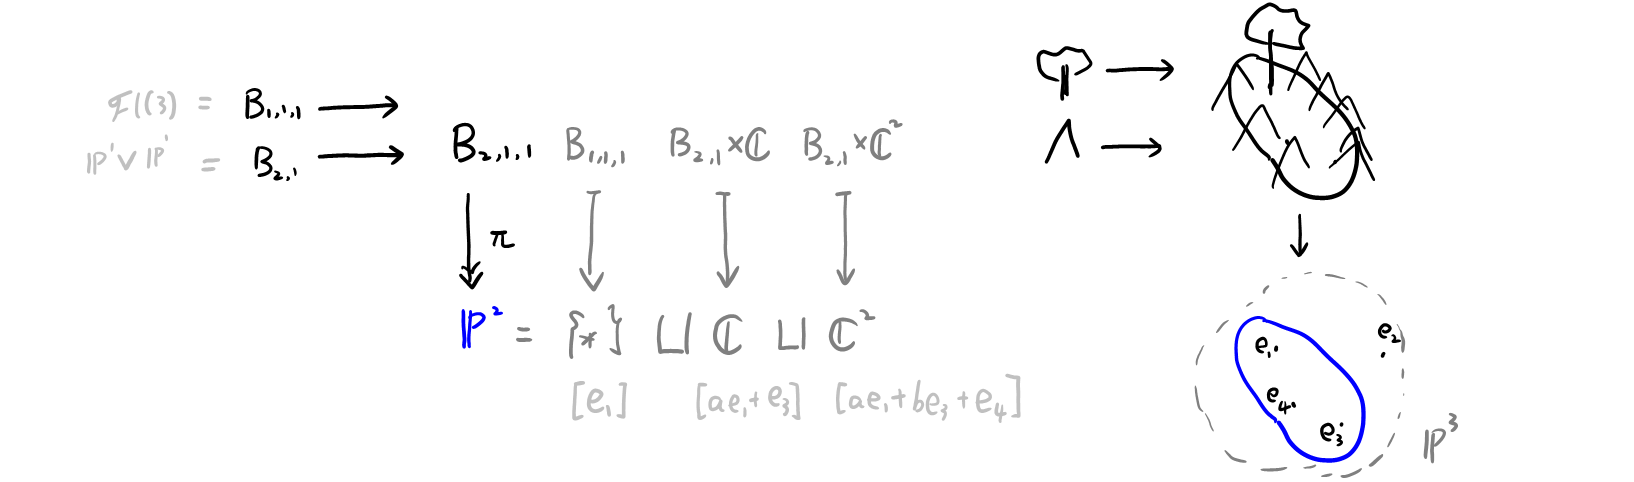 Fl(3) = B₁,₁,₁
ℙ¹ ∨ ℙ¹ = B₂,₁
B₂,₁,₁ B₁,₁,₁ B₂,₁×ℂ B₂,₁×ℂ²
π
ℙ² = {*} ⊔ ℂ ⊔ ℂ²
[e₁] [ae₁+e₃] [ae₁+be₃+e₄]
e₂
e₁
e₄
e₃
ℙ³